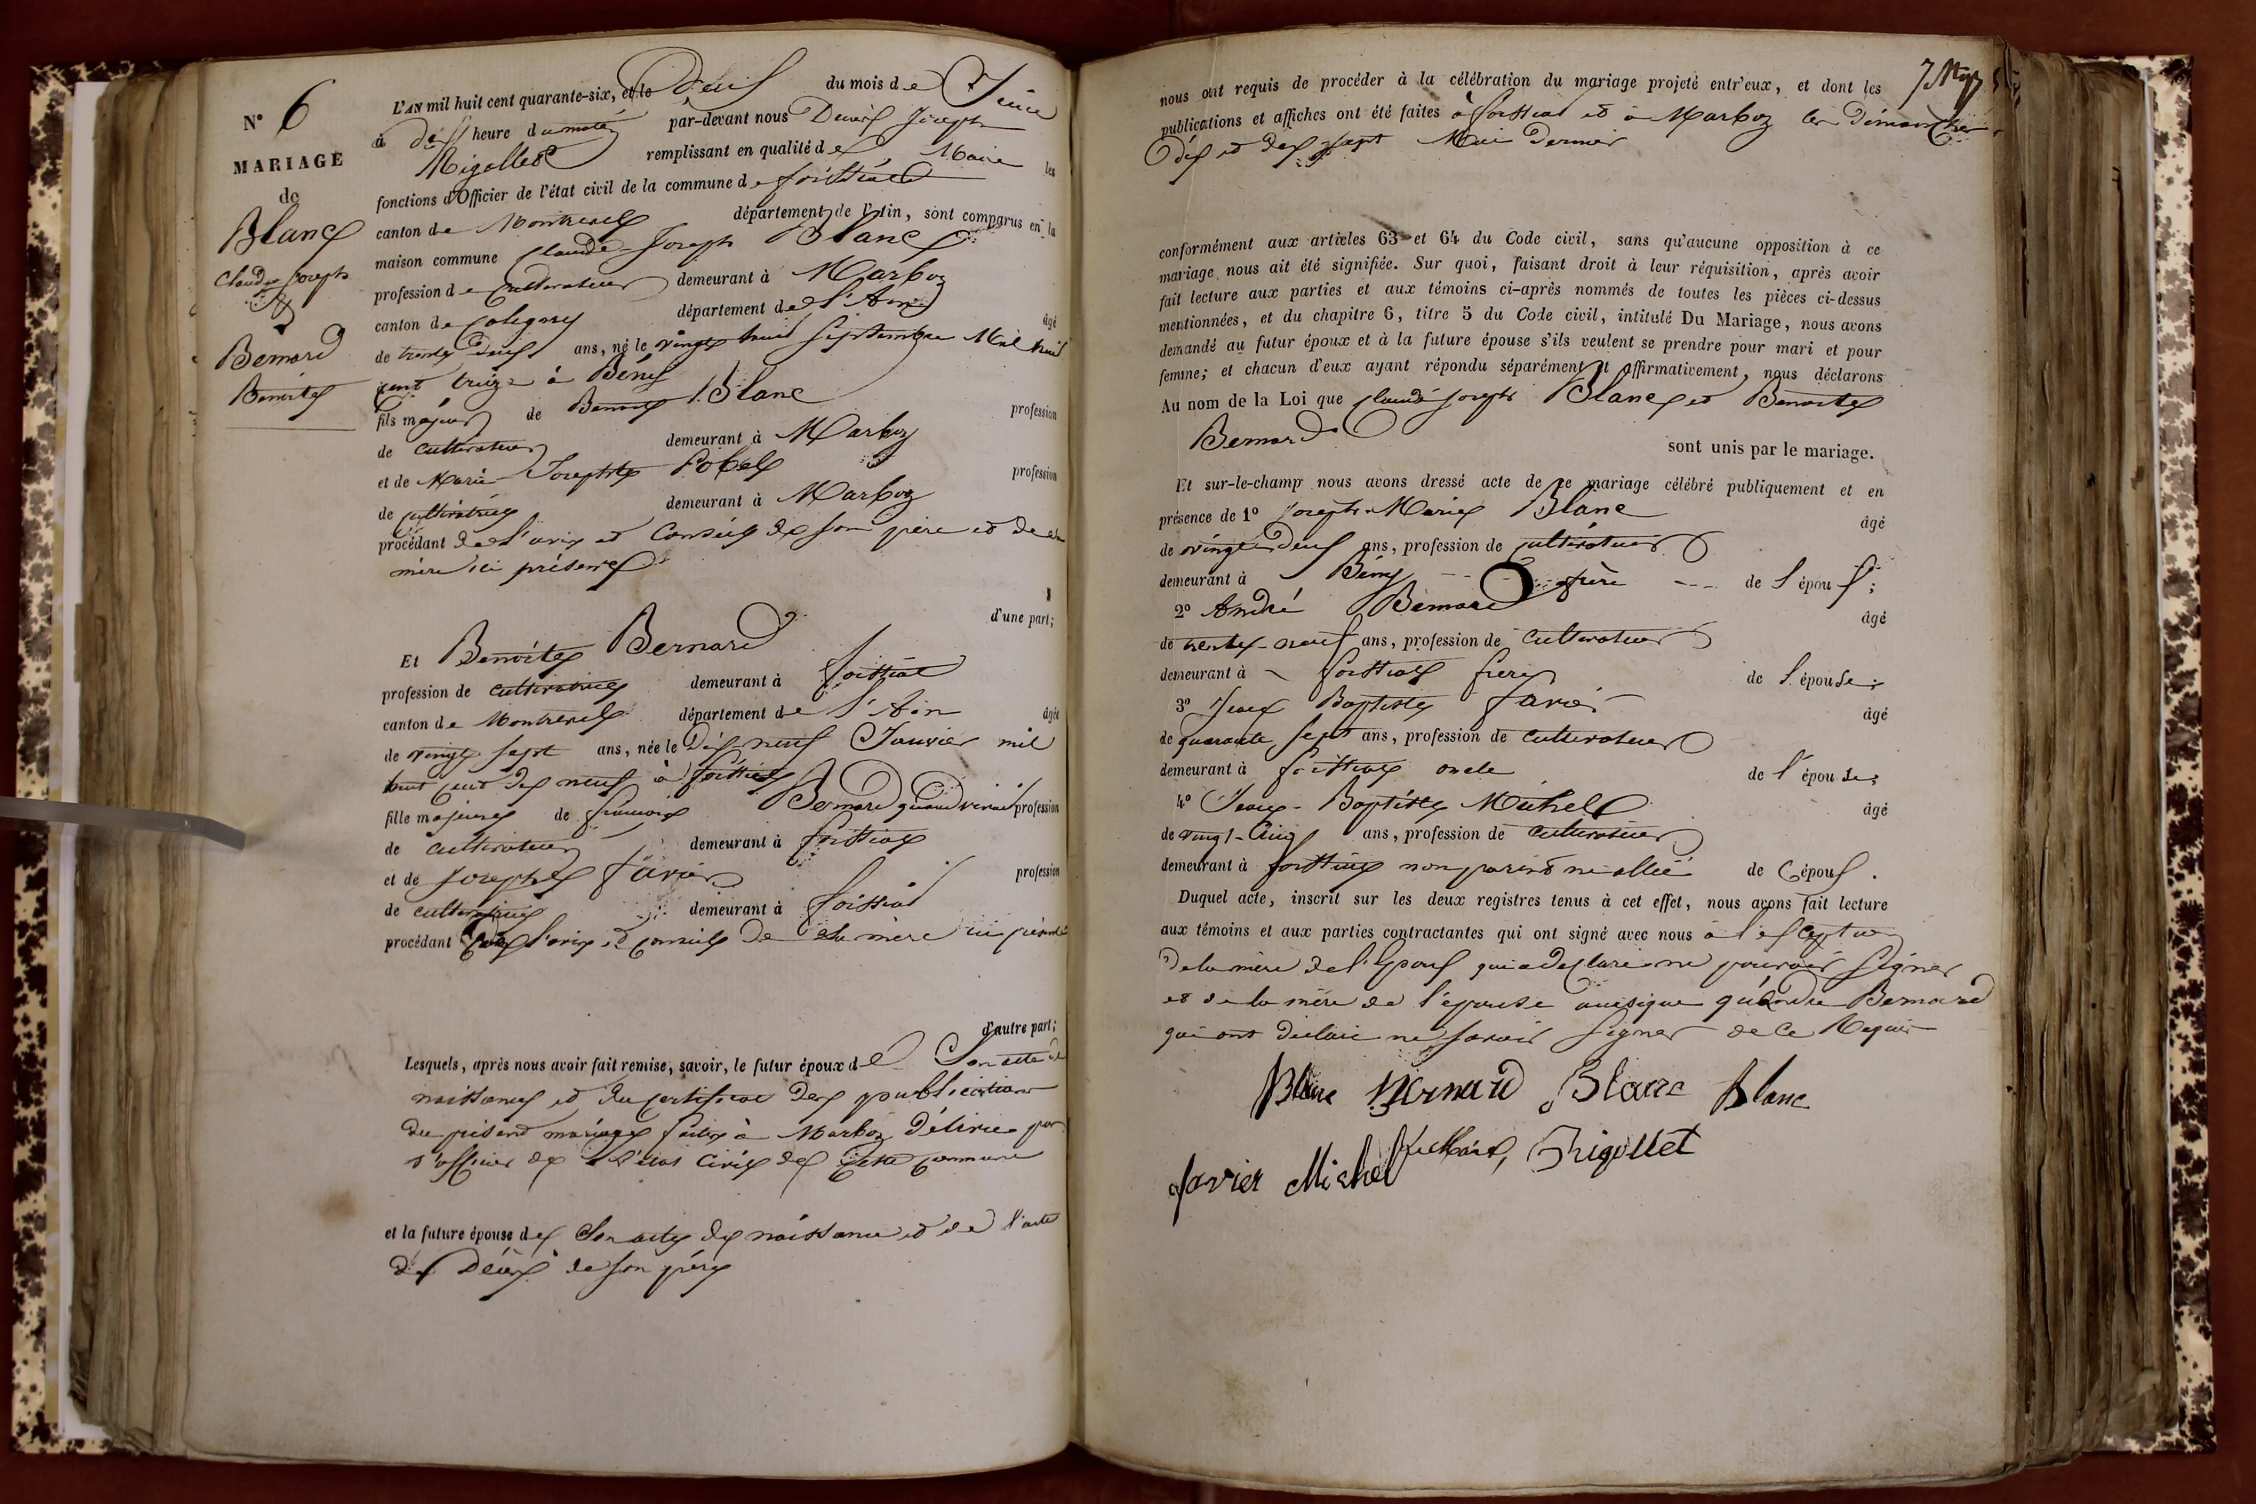 N° 6
MARIAGE
de
Blanc
Claude Joseph
&
Bernard
Benoite
L'AN mil huit cent quarante-six, et le Deux du mois de Juin
à dix heure du matin par-devant nous Denis Joseph
Rigollet remplissant en qualité de Maire les
fonctions d'Officier de l'état civil de la commune de foissiat
canton de Montrevel département de l'Ain, sont comparus en la
maison commune Claude Joseph Blanc
profession de cultivateur demeurant à Marboz
canton de Coligny département de l'Ain âgé
de trente deux ans, né le vingt huit Septembre Mil huit
cent treize à Beny
fils majeur de Benoit Blanc profession
de cultivateur demeurant à Marboz
et de Marie Josephte Pobel profession
de cultivatrice demeurant à Marboz
procédant de l'avis et Conseil de son père et de sa
mère ici présens
d'une part;
Et Benoite Bernard
profession de cultivatrice demeurant à foissiat
canton de Montrevel département de l'Ain âgée
de vingt sept ans, née le Dix neuf Janvier mil
huit cent dix neuf à foissiat
fille majeure de françois Bernard quand vivait profession
de cultivateur demeurant à foissiat
et de Josephte favier profession
de cultivatrice demeurant à foissiat
procédant de l'avis et conseil de sa mère ici présente
d'autre part;
Lesquels, après nous avoir fait remise, savoir, le futur époux de Son acte de
naissance et du certificat des publications
du présent mariage faites à Marboz délivré par
l'officier de l'état civil de cette commune
et la future épouse de Son acte de naissance et de l'acte
de Décès de son père
nous ont requis de procéder à la célébration du mariage projeté entr'eux, et dont les
publications et affiches ont été faites à foissiat et à Marboz les dimanches
dix et dix sept Mai Dernier
conformément aux articles 63 et 64 du Code civil, sans qu'aucune opposition à ce
mariage nous ait été signifiée. Sur quoi, faisant droit à leur réquisition, après avoir
fait lecture aux parties et aux témoins ci-après nommés de toutes les pièces ci-dessus
mentionnées, et du chapitre 6, titre 5 du Code civil, intitulé Du Mariage, nous avons
demandé au futur époux et à la future épouse s'ils veulent se prendre pour mari et pour
femme; et chacun d'eux ayant répondu séparément et affirmativement, nous déclarons
Au nom de la Loi que Claude Joseph Blanc et Benoite
Bernard
sont unis par le mariage.
Et sur-le-champ nous avons dressé acte de ce mariage célébré publiquement et en
présence de 1° Joseph Marie Blanc âgé
de vingt deux ans, profession de cultivateur
demeurant à Beny frère de l'époux;
2° André Bernard âgé
de trente-neuf ans, profession de cultivateur
demeurant à foissiat frère de l'épouse;
3° Jean Baptiste favier âgé
de quarante sept ans, profession de cultivateur
demeurant à foissiat oncle de l'épouse;
4° Jean-Baptiste Michel âgé
de vingt-cinq ans, profession de cultivateur
demeurant à foissiat non parent ni allié de l'époux.
Duquel acte, inscrit sur les deux registres tenus à cet effet, nous avons fait lecture
aux témoins et aux parties contractantes qui ont signé avec nous à l'exception
de la mère de l'époux qui a déclaré ne pouvoir signer
et de la mère de l'épouse ainsi que qu'andre Bernard
qui ont déclaré ne savoir signer de ce Requis
Blanc Bernard Blanc Blanc
favier Michel Rigollet